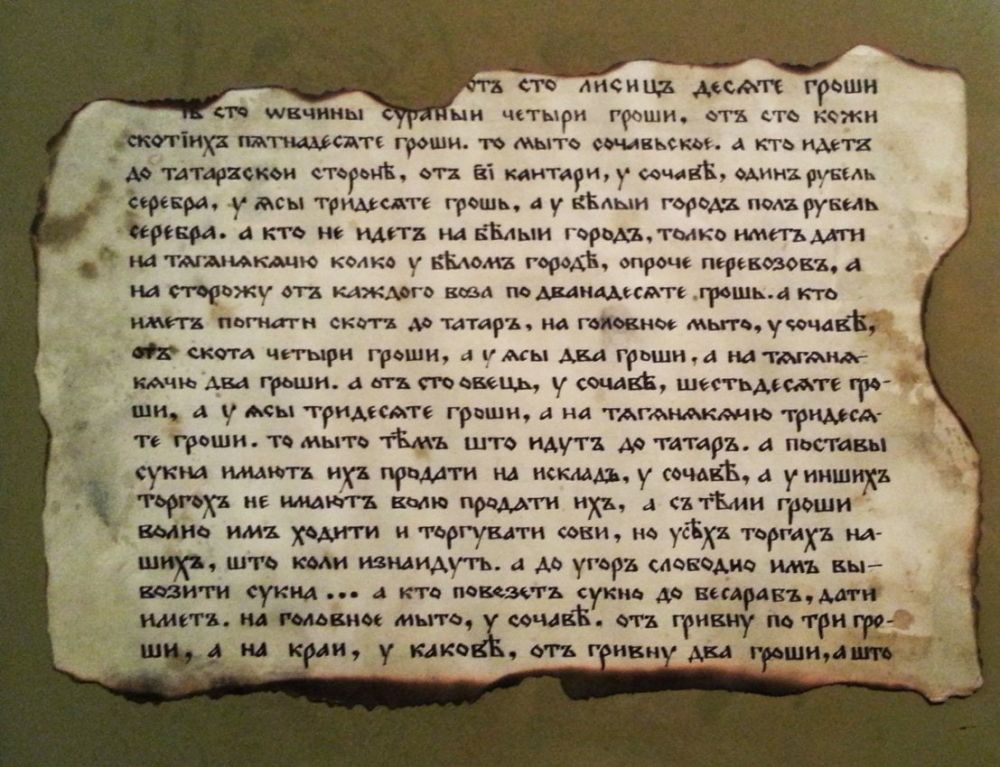 отъ сто лисицъ десѧте гроши
сто ѡвчины сураныи четыри гроши, отъ сто кожи
скотіихъ пѧтнадесѧте гроши. то мыто сочавьское. а кто идетъ
до татаръскои сторонѣ, отъ в҃і кантари, у сочавѣ, одинъ рубель
серебра, у ѧсы тридесѧте грошь, а у бѣлыи городъ полъ рубель
серебра. а кто не идетъ на бѣлыи городъ, толко иметъ дати
на тѧгѧнѧкѧчю колко у бѣломъ городѣ, опроче перевозовъ, а
на сторожу отъ каждого воза по дванадесѧте грошь. а кто
иметъ погнати скотъ до татаръ, на головное мыто, у сочавѣ,
отъ скота четыри гроши, а у ѧсы два гроши, а на тѧгѧнѧ-
кѧчю два гроши. а отъ сто овець, у сочавѣ, шестьдесѧте гро-
ши, а у ѧсы тридесѧте гроши, а на тѧгѧнѧкѧчю тридесѧ-
те гроши. то мыто тѣмъ што идутъ до татаръ. а поставы
сукна имаютъ ихъ продати на искладь, у сочавѣ, а у иншихъ
торгохъ не имаютъ волю продати ихъ, а съ тѣми гроши
волно имъ ходити и торгувати сови, но усѣхъ торгахъ на-
шихъ, што коли изнаидуть. а до угоръ слободно имъ вы-
возити сукна ... а кто повезетъ сукно до бесарабъ, дати
иметъ. на головное мыто, у сочавѣ. отъ гривну по три гро-
ши, а на краи, у каковѣ, отъ гривну два гроши, а што